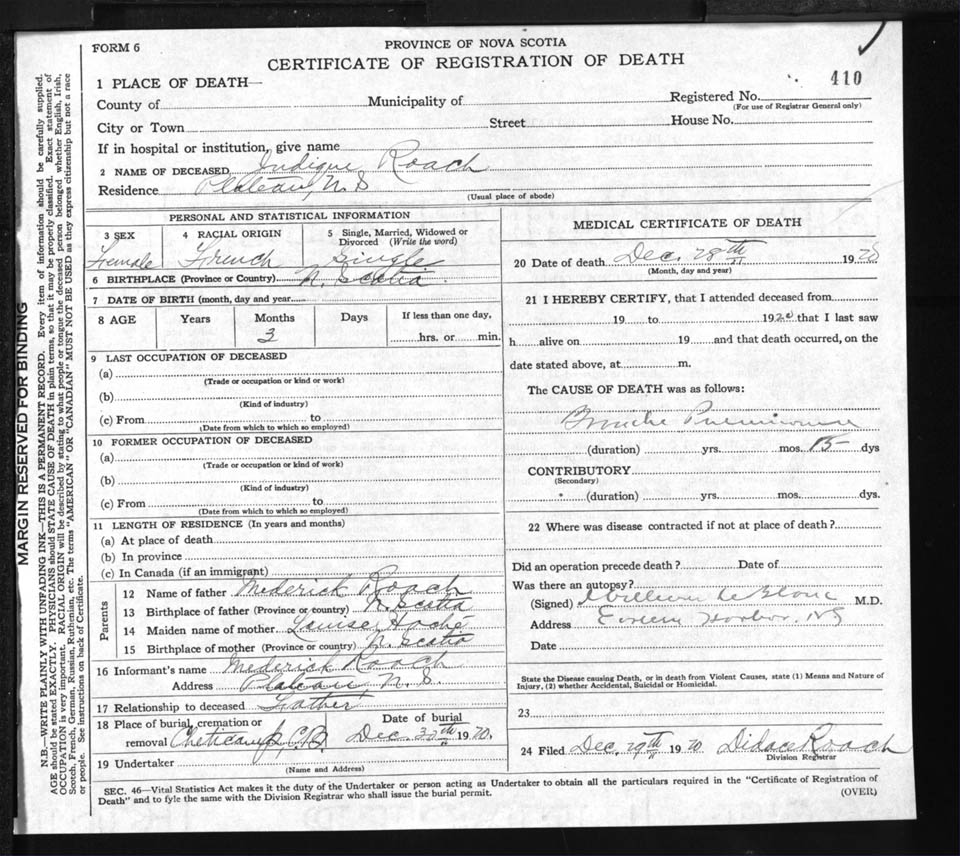 FORM 6
PROVINCE OF NOVA SCOTIA
CERTIFICATE OF REGISTRATION OF DEATH
410
1 PLACE OF DEATH—
County of Municipality of Registered No.
(For use of Registrar General only)
City or Town Street House No.
If in hospital or institution, give name
2 NAME OF DECEASED Roach
Residence Plateau, N.S
(Usual place of abode)
PERSONAL AND STATISTICAL INFORMATION
3 SEX 4 RACIAL ORIGIN 5 Single, Married, Widowed or Divorced (Write the word)
Female French Single
6 BIRTHPLACE (Province or Country) N. Scotia
7 DATE OF BIRTH (month, day and year)
8 AGE Years Months Days If less than one day,
3 hrs. or min.
9 LAST OCCUPATION OF DECEASED
(a)
(Trade or occupation or kind or work)
(b)
(Kind of industry)
(c) From to
(Date from which to which so employed)
10 FORMER OCCUPATION OF DECEASED
(a)
(Trade or occupation or kind of work)
(b)
(Kind of industry)
(c) From to
(Date from which to which so employed)
11 LENGTH OF RESIDENCE (In years and months)
(a) At place of death
(b) In province
(c) In Canada (if an immigrant)
Parents
12 Name of father Mederick Roach
13 Birthplace of father (Province or country) N. Scotia
14 Maiden name of mother Louise Haché
15 Birthplace of mother (Province or country) N. Scotia
16 Informant's name Mederick Roach
Address Plateau N.S.
17 Relationship to deceased Father
18 Place of burial, cremation or Date of burial
removal Cheticamp, C.B. Dec. 30th 19
19 Undertaker
(Name and Address)
MEDICAL CERTIFICATE OF DEATH
20 Date of death Dec. 28th 19
(Month, day and year)
21 I HEREBY CERTIFY, that I attended deceased from
19 to 192 that I last saw
h alive on 19 and that death occurred, on the
date stated above, at m.
The CAUSE OF DEATH was as follows:
(duration) yrs. mos. 15 dys
CONTRIBUTORY
(Secondary)
(duration) yrs. mos. dys.
22 Where was disease contracted if not at place of death?
Did an operation precede death? Date of
Was there an autopsy?
(Signed) M.D.
Address N.S
Date
State the Disease causing Death, or in death from Violent Causes, state (1) Means and Nature of
Injury, (2) whether Accidental, Suicidal or Homicidal.
23
24 Filed Dec. 29th 19 Didace Roach
Division Registrar
SEC. 46—Vital Statistics Act makes it the duty of the Undertaker or person acting as Undertaker to obtain all the particulars required in the "Certificate of Registration of
Death" and to fyle the same with the Division Registrar who shall issue the burial permit.
(OVER)
MARGIN RESERVED FOR BINDING
N.B.—WRITE PLAINLY WITH UNFADING INK—THIS IS A PERMANENT RECORD. Every item of information should be carefully supplied.
AGE should be stated EXACTLY. PHYSICIANS should STATE CAUSE OF DEATH in plain terms, so that it may be properly classified. Exact statement of
OCCUPATION is very important. RACIAL ORIGIN will be described by stating to what people or tongue the deceased person belonged whether English, Irish,
Scotch, French, German, Russian, Ruthenian, etc. The terms "AMERICAN" OR "CANADIAN" MUST NOT BE USED as they express citizenship but not a race
or people. See instructions on back of Certificate.